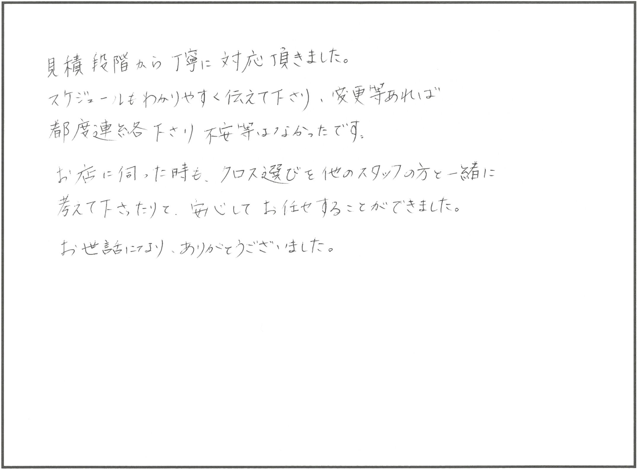 見積段階から丁寧に対応頂きました。
スケジュールもわかりやすく伝えて下さり、変更等あれば
都度連絡下さり不安等はなかったです。
お店に伺った時も、クロス選びを他のスタッフの方と一緒に
考えて下さったりと、安心してお任せすることができました。
お世話になり、ありがとうございました。